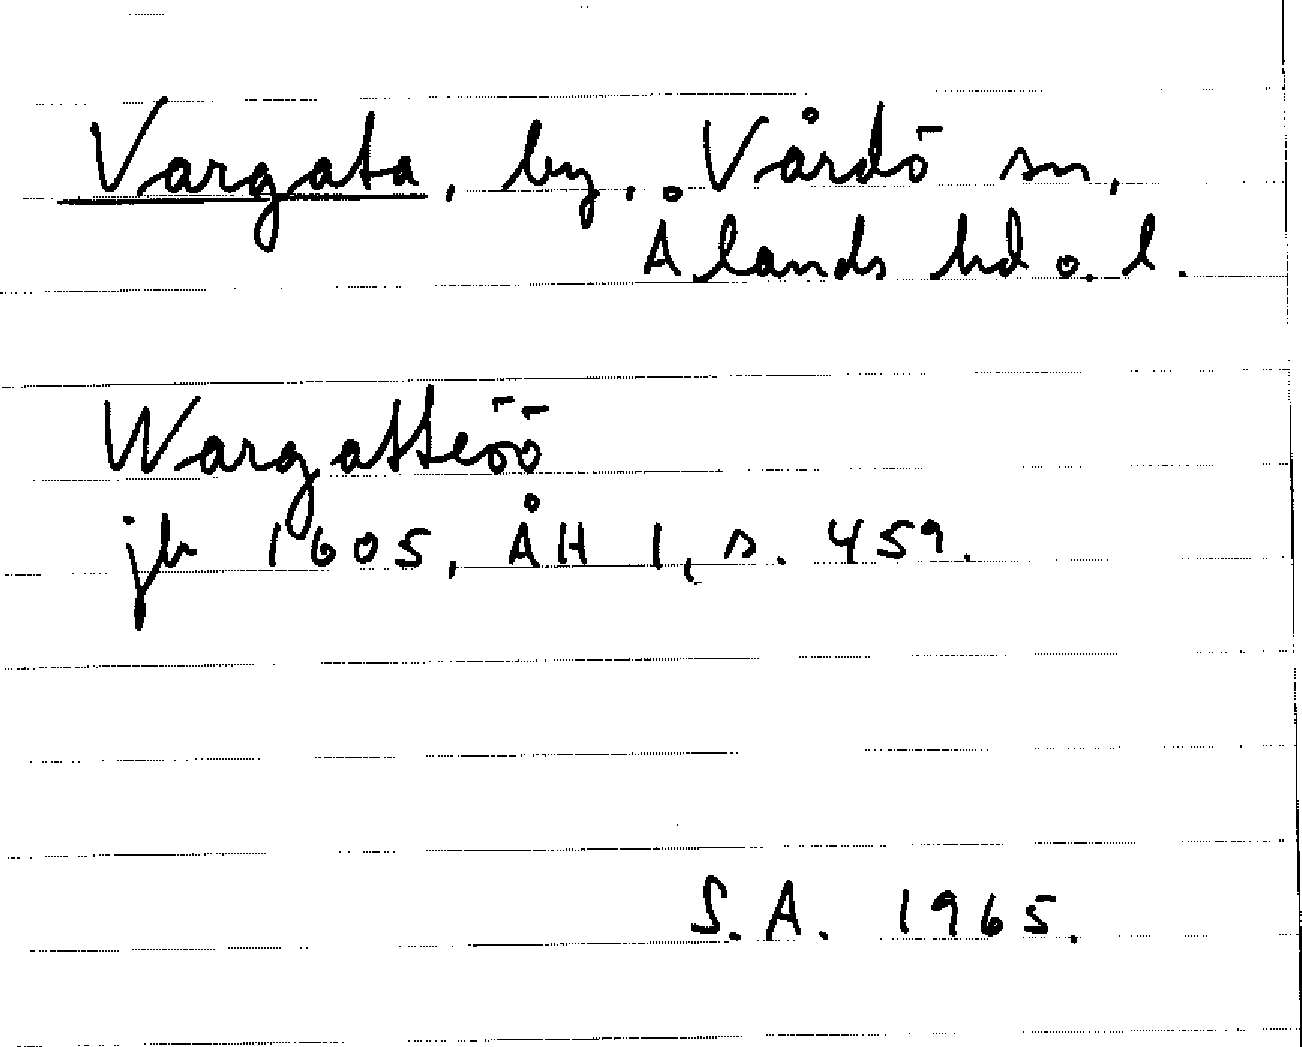 Vargata, by, Vårdö sn,
Ålands hd o. l.
Wargatteöö
jb 1605, ÅH I, s. 459.
S.A. 1965.